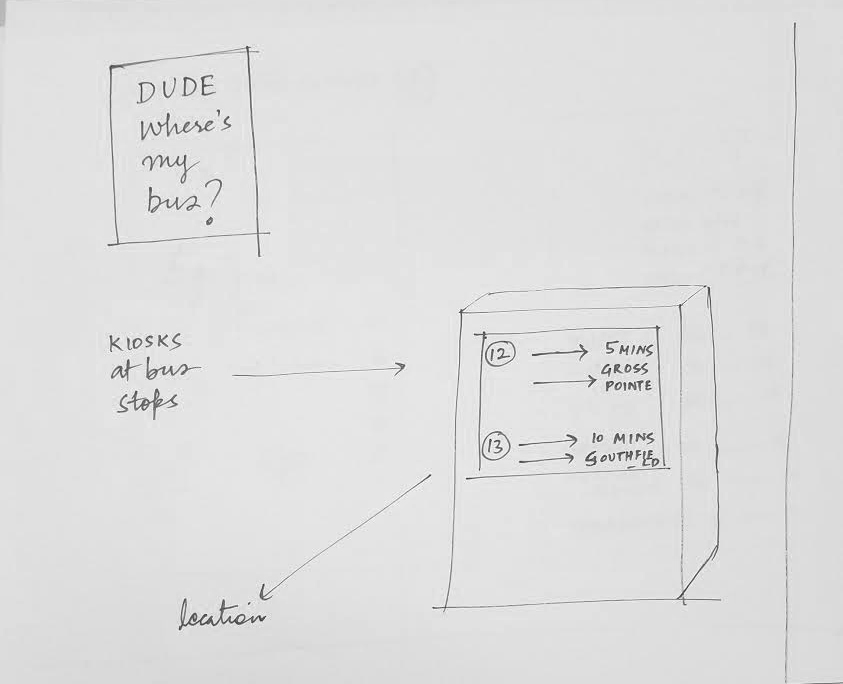 DUDE
Where's
my
bus?
KIOSKS
at bus
stops
12 → 5 MINS
→ GROSS
POINTE
13 → 10 MINS
→ SOUTHFIELD
location